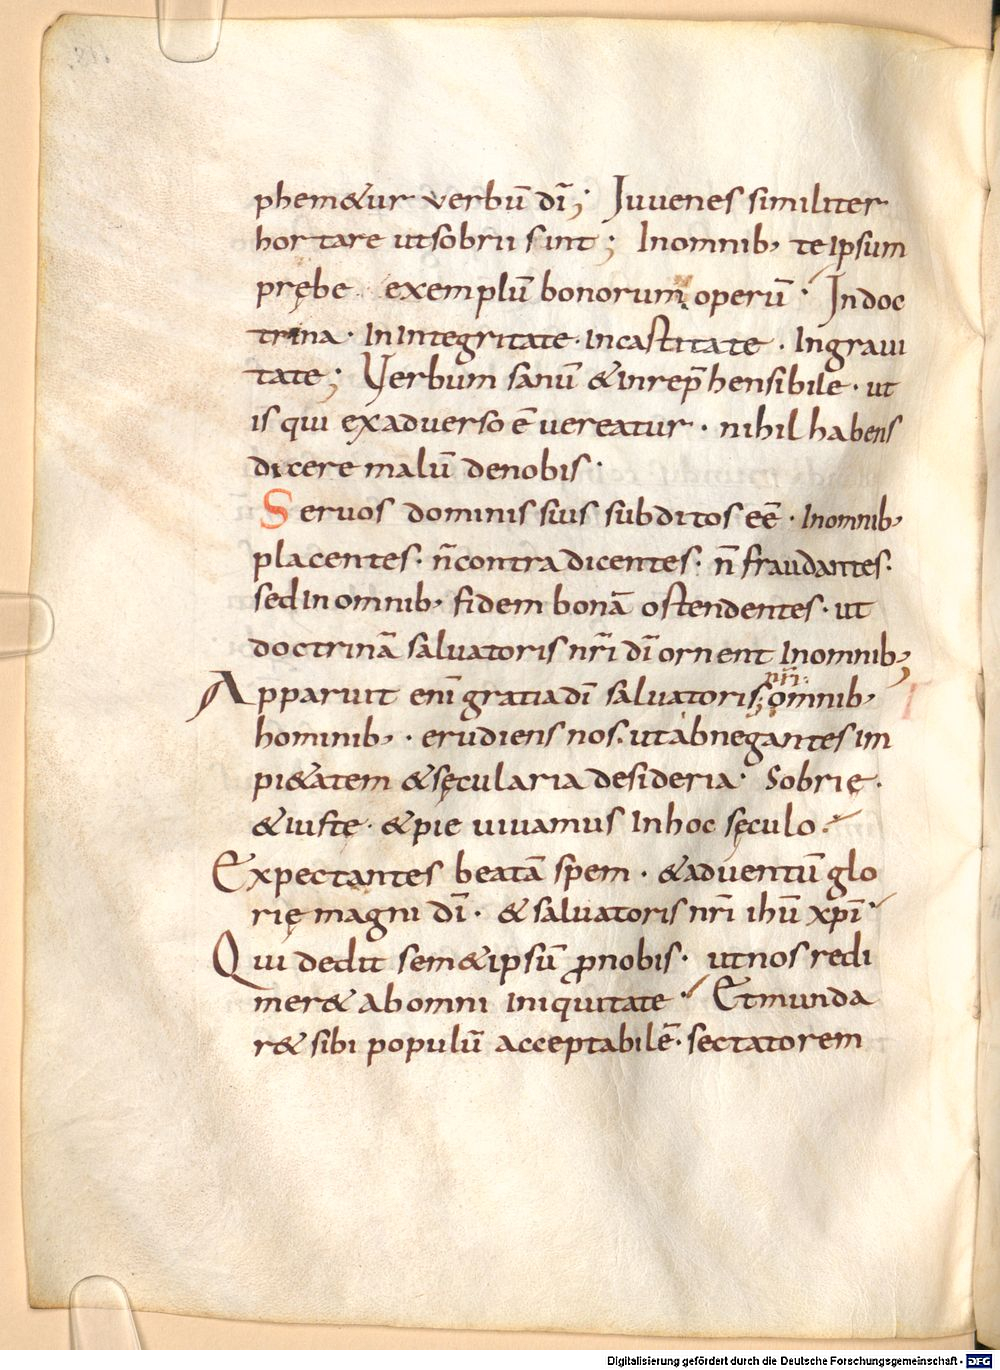 phem&ur verbū dī; Iuuenes similiter
hortare ut sobrii sint; Inomnib, te ipsum
prębe exemplū bonorum operū· Indoc
trina· Inintegritate· incastitate· Ingraui
tate; Verbum sanū &inrep̄hensibile· ut
is qui exaduerso ē uereatur· nihil habens
dicere malū denobis·
Seruos dominis suis subditos eē· Inomnib,
placentes· n̄contradicentes· n̄ fraudantes·
sed In omnib, fidem bonā ostendentes· ut
doctrinā saluatoris nr̄i dī ornent Inomnib,
Apparuit enī gratia dī saluatoris; nr̄i· omnib,
hominib,· erudiens nos· ut abnegantes im
pi&atem &sęcularia desideria· Sobrię·
&iuste· &pie uiuamus Inhoc sęculo·
Expectantes beatā spem· &aduentū glo
rię magni dī· &saluatoris nr̄i ihū xp̄i·
Qui dedit sem&ipsū ꝓnobis· ut nos redi
mer& ab omni iniquitate· Etmunda
r& sibi populū acceptabilē· sectatorem
Digitalisierung gefördert durch die Deutsche Forschungsgemeinschaft - DFG